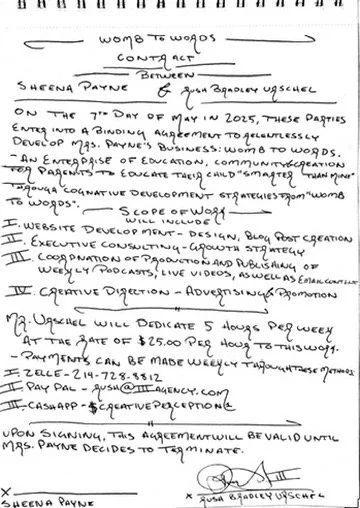 WOMB TO WORDS
CONTRACT
BETWEEN
SHEENA PAYNE & RUSH BRADLEY URSCHEL
ON THE 7TH DAY OF MAY IN 2025, THESE PARTIES
ENTER INTO A BINDING AGREEMENT TO RELENTLESSLY
DEVELOP MRS. PAYNE'S BUSINESS: WOMB TO WORDS.
- AN ENTERPRISE OF EDUCATION, COMMUNITY & CREATION
FOR PARENTS TO EDUCATE THEIR CHILD "SMARTER THAN MINE"
THROUGH COGNATIVE DEVELOPMENT STRATEGIES FROM "WOMB
TO WORDS".
SCOPE OF WORK
WILL INCLUDE
I. WEBSITE DEVELOPMENT - DESIGN, BLOG POST CREATION
II. EXECUTIVE CONSULTING - GROWTH STRATEGY
III. COORDNATION OF PRODUCTION AND PUBLISHING OF
WEEKLY PODCASTS, LIVE VIDEOS, AS WELL AS EMAIL CONTENT
IV. CREATIVE DIRECTION - ADVERTISING & PROMOTION
MR. URSCHEL WILL DEDICATE 5 HOURS PER WEEK
AT THE RATE OF $25.00 PER HOUR TO THIS WORK.
- PAYMENTS CAN BE MADE WEEKLY THROUGH THESE METHODS
I. ZELLE - 214-728-8812
II. PAY PAL - RUSH@IIIAGENCY.COM
III. CASHAPP - $CREATIVEPERCEPTION
UPON SIGNING, THIS AGREEMENT WILL BE VALID UNTIL
MRS. PAYNE DECIDES TO TERMINATE.
X
SHEENA PAYNE
X RUSH BRADLEY URSCHEL